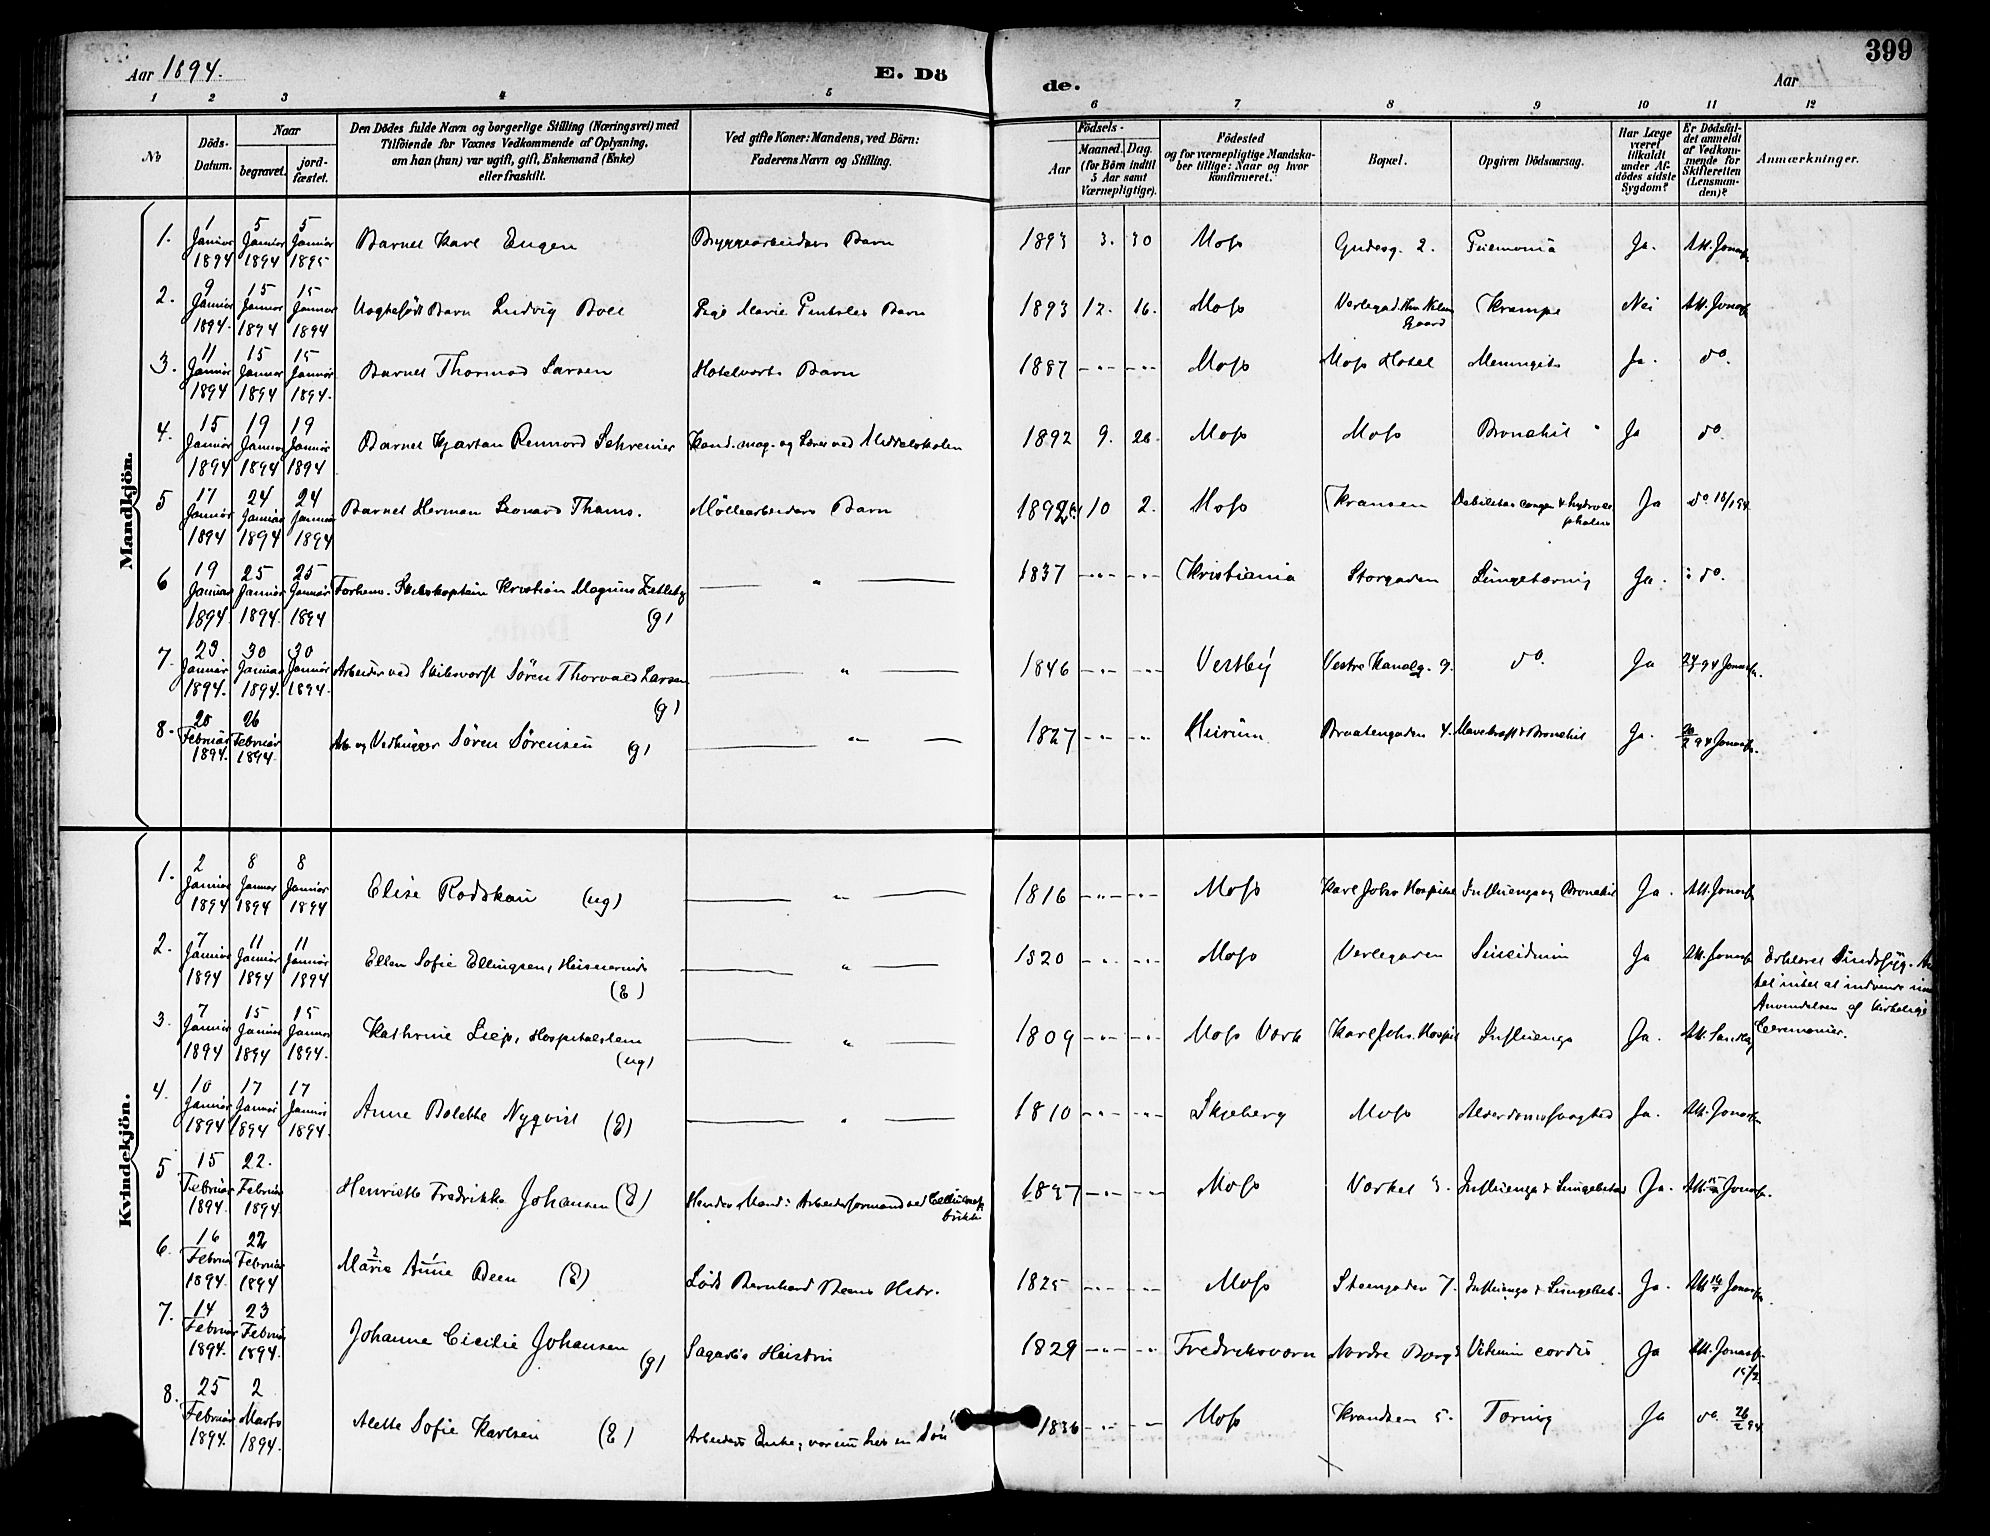 Aar 1894.
E. Döde.
Aar
399
1 2 3 4 5 6 7 8 9 10 11 12
No
Döds-Datum.
Naar
begravet.
jordfæstet.
Den Dödes fulde Navn og borgerlige Stilling (Næringsvei) med
Tilföiende for Voxnes Vedkommende af Oplysning,
om han (hun) var ugift, gift, Enkemand (Enke)
eller fraskilt.
Ved gifte Koner: Mandens, ved Börn:
Faderens Navn og Stilling.
Födsels-
Aar
Maaned. Dag.
(for Börn indtil
5 Aar samt
Værnepligtige).
Födested
og for værnepligtige Mandskaber tillige: Naar og hvor
konfirmeret.
Bopæl.
Opgiven Dödsaarsag.
Har Læge
været
tilkaldt
under Afdödes sidste
Sygdom?
Er Dödsfaldet anmeldt
af Vedkommende for
Skifteretten
(Lensmanden)?
Anmærkninger.
Mandkjön.
1. 1 Januar 1894 5 Januar 1894 5 Januar 1895 Barnet Karl Eugen Bryggearbeiders Barn 1893 3. 30 Moss Gudesg. 2. Ja. Att. Jonass.
2. 9 Januar 1894. 15 Januar 1894 15 Januar 1894 Uægtefödt Barn Ludvig Pige Marie Barn 1893 12. 16. Moss Verlegad. Krampe Nei Att. Jonass
3. 11 Januar 1894 15 Januar 1894 15 Januar 1894. Barnet Thormod Larsen Hotelværts Barn 1887 Moss Moss Hotel Meningit Ja. do.
4. 15 Januar 1894 19 Januar 1894 19 Januar 1894 Barnet Kjartan Schreiner Kand. mag. og Lærer ved Middelskolen 1892 9. 26. Moss Moss Bronchit Ja do.
5 17 Januar 1894 24 Januar 1894 24 Januar 1894 Barnet Herman Leonard Thams. Möllearbeiders Barn 1892 10 2. Moss Kransen Debilitas congen & hydrocephalus Ja do 18/1 94
6 19 Januar 1894 25 Januar 1894. 25 Januar 1894 Forhenv. Skibskaptein Kristian Magnus (g) " 1837 Kristiania Storgaden Lungetæring Ja. do.
7. 23 Januar 1894. 30 Januar 1894. 30 Januar 1894. Arbeider ved Skibsværft Sören Thorvald Larsen (g) " 1846 Vestby Vestre Kanalg. 9. do. Ja 24/1 94 Jonass.
8. 20 Februar 1894. 26 Februar 1894. Arb og Vedhugger Sören Sörensen (g) " 1827 Hurum Braatengaden 4. Mavekræft & Bronchit Ja. 20/2 94 Jonass.
Kvindekjön.
1. 2 Januar 1894 8 Januar 1894 8 Januar 1894 Elise Rodskau (ug) " 1816 Moss Karl Johs Hospital Influenza og Bronchit Ja. Att. Jonass
2. 7 Januar 1894 11 Januar 1894 11 Januar 1894 Ellen Sofie Ellingsen, Huseierinde (E) " 1820 Moss Verlegaden Suicidium Ja Att. Jonass Erklæret Sindssyg.
intet at indvende
Anvendelsen af kirkelige
Ceremonier.
3. 7 Januar 1894 15 Januar 1894 15 Januar 1894. Kathrine Hospitalslem (ug) " 1809 Moss Værk Karl Johs. Hospit Influenza Ja. Att.
4. 10 Januar 1894 17 Januar 1894 17 Januar 1894. Anne Bolette Nyqvist (E) " 1810 Skjeberg Moss Alderdomssvaghed Ja. Att. Jonass
5 15 Februar 1894. 22. Februar 1894. Henriette Fredrikke Johansen (E) Hendes Mand: Arbeidsformand ved 18 7 Moss Værket Influenza & Lungebet Ja. Att. Jonass.
6. 16 Februar 1894. 22 Februar 1894 Marie Anne Been (E) Lods Bernhard Beens Hstr. 1825 Moss Steengaden 7. Influenza & Lungebet. Ja. Att. 16/2 Jonass.
7. 14 Februar 1894. 23 Februar 1894. Johanne Cicilie Johansen (g) Hustru 1829 Fredriksværn Nordre Bjerg Vitium cordis Ja Att. Jonass 15/2
8. 25 Februar 1894. 2 Marts 1894. Alette Sofie Karlsen (E) Arbeiders Enke, 1836 Moss Krandsen 5. Tæring Ja do. 26/2 94